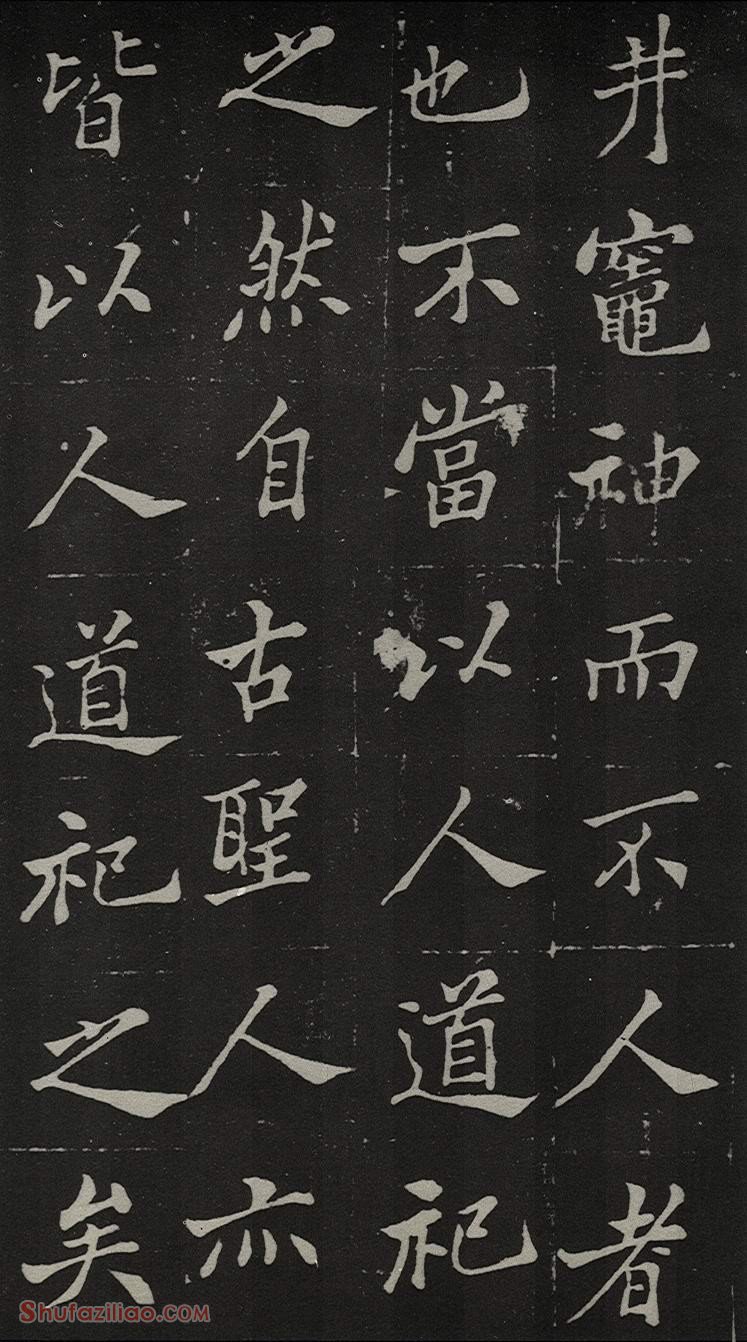 井竈神而不人者
也不當以人道祀
之然自古聖人亦
皆以人道祀之矣
Shufaziliao.COM